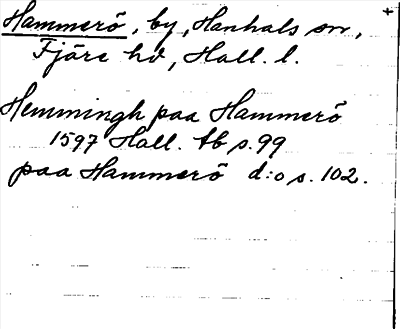 Hammerö, by, Hanhals sn,
Fjäre hd, Hall. l.
Hemmingh paa Hammerö
1597 Hall. tb s. 99
paa Hammerö d:o s. 102.